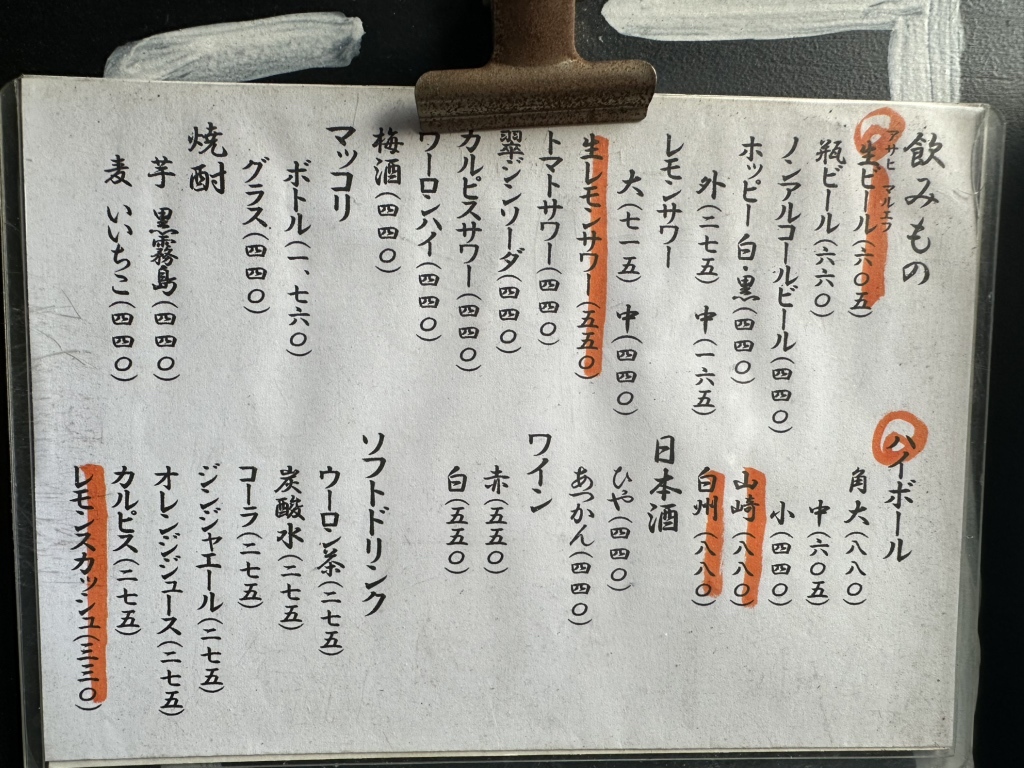 飲みもの
アサヒ マルエフ
生ビール(六〇五)
瓶ビール(六六〇)
ノンアルコールビール(四四〇)
ホッピー 白・黒(四四〇)
外(二七五) 中(一六五)
レモンサワー
大(七一五) 中(四四〇)
生レモンサワー(五五〇)
トマトサワー(四四〇)
翠ジンソーダ(四四〇)
カルピスサワー(四四〇)
ウーロンハイ(四四〇)
梅酒(四四〇)
マッコリ
ボトル(一、七六〇)
グラス(四四〇)
焼酎
芋 黒霧島(四四〇)
麦 いいちこ(四四〇)
ハイボール
角 大(八八〇)
中(六〇五)
小(四四〇)
山崎(八八〇)
白州(八八〇)
日本酒
ひや(四四〇)
あつかん(四四〇)
ワイン
赤(五五〇)
白(五五〇)
ソフトドリンク
ウーロン茶(二七五)
炭酸水(二七五)
コーラ(二七五)
ジンジャエール(二七五)
オレンジジュース(二七五)
カルピス(二七五)
レモンスカッシュ(三三〇)